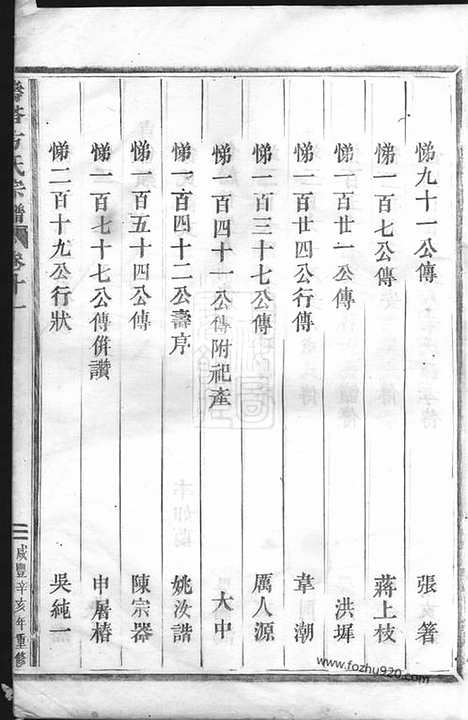 悌九十一公傳 張箸
悌一百七公傳 蔣上枝
悌一百廿一公傳 洪墀
悌一百廿四公行傳 韋潮
悌一百三十七公傳 厲人源
悌一百四十一公傳附祀產 大中
悌一百四十二公壽序 姚汝諧
悌一百五十四公傳 陳宗器
悌一百七十七公傳併讚 申屠椿
悌二百十九公行狀 吳純一
方氏宗譜 卷十一 咸豐辛亥年重修
www.fozhu920.com